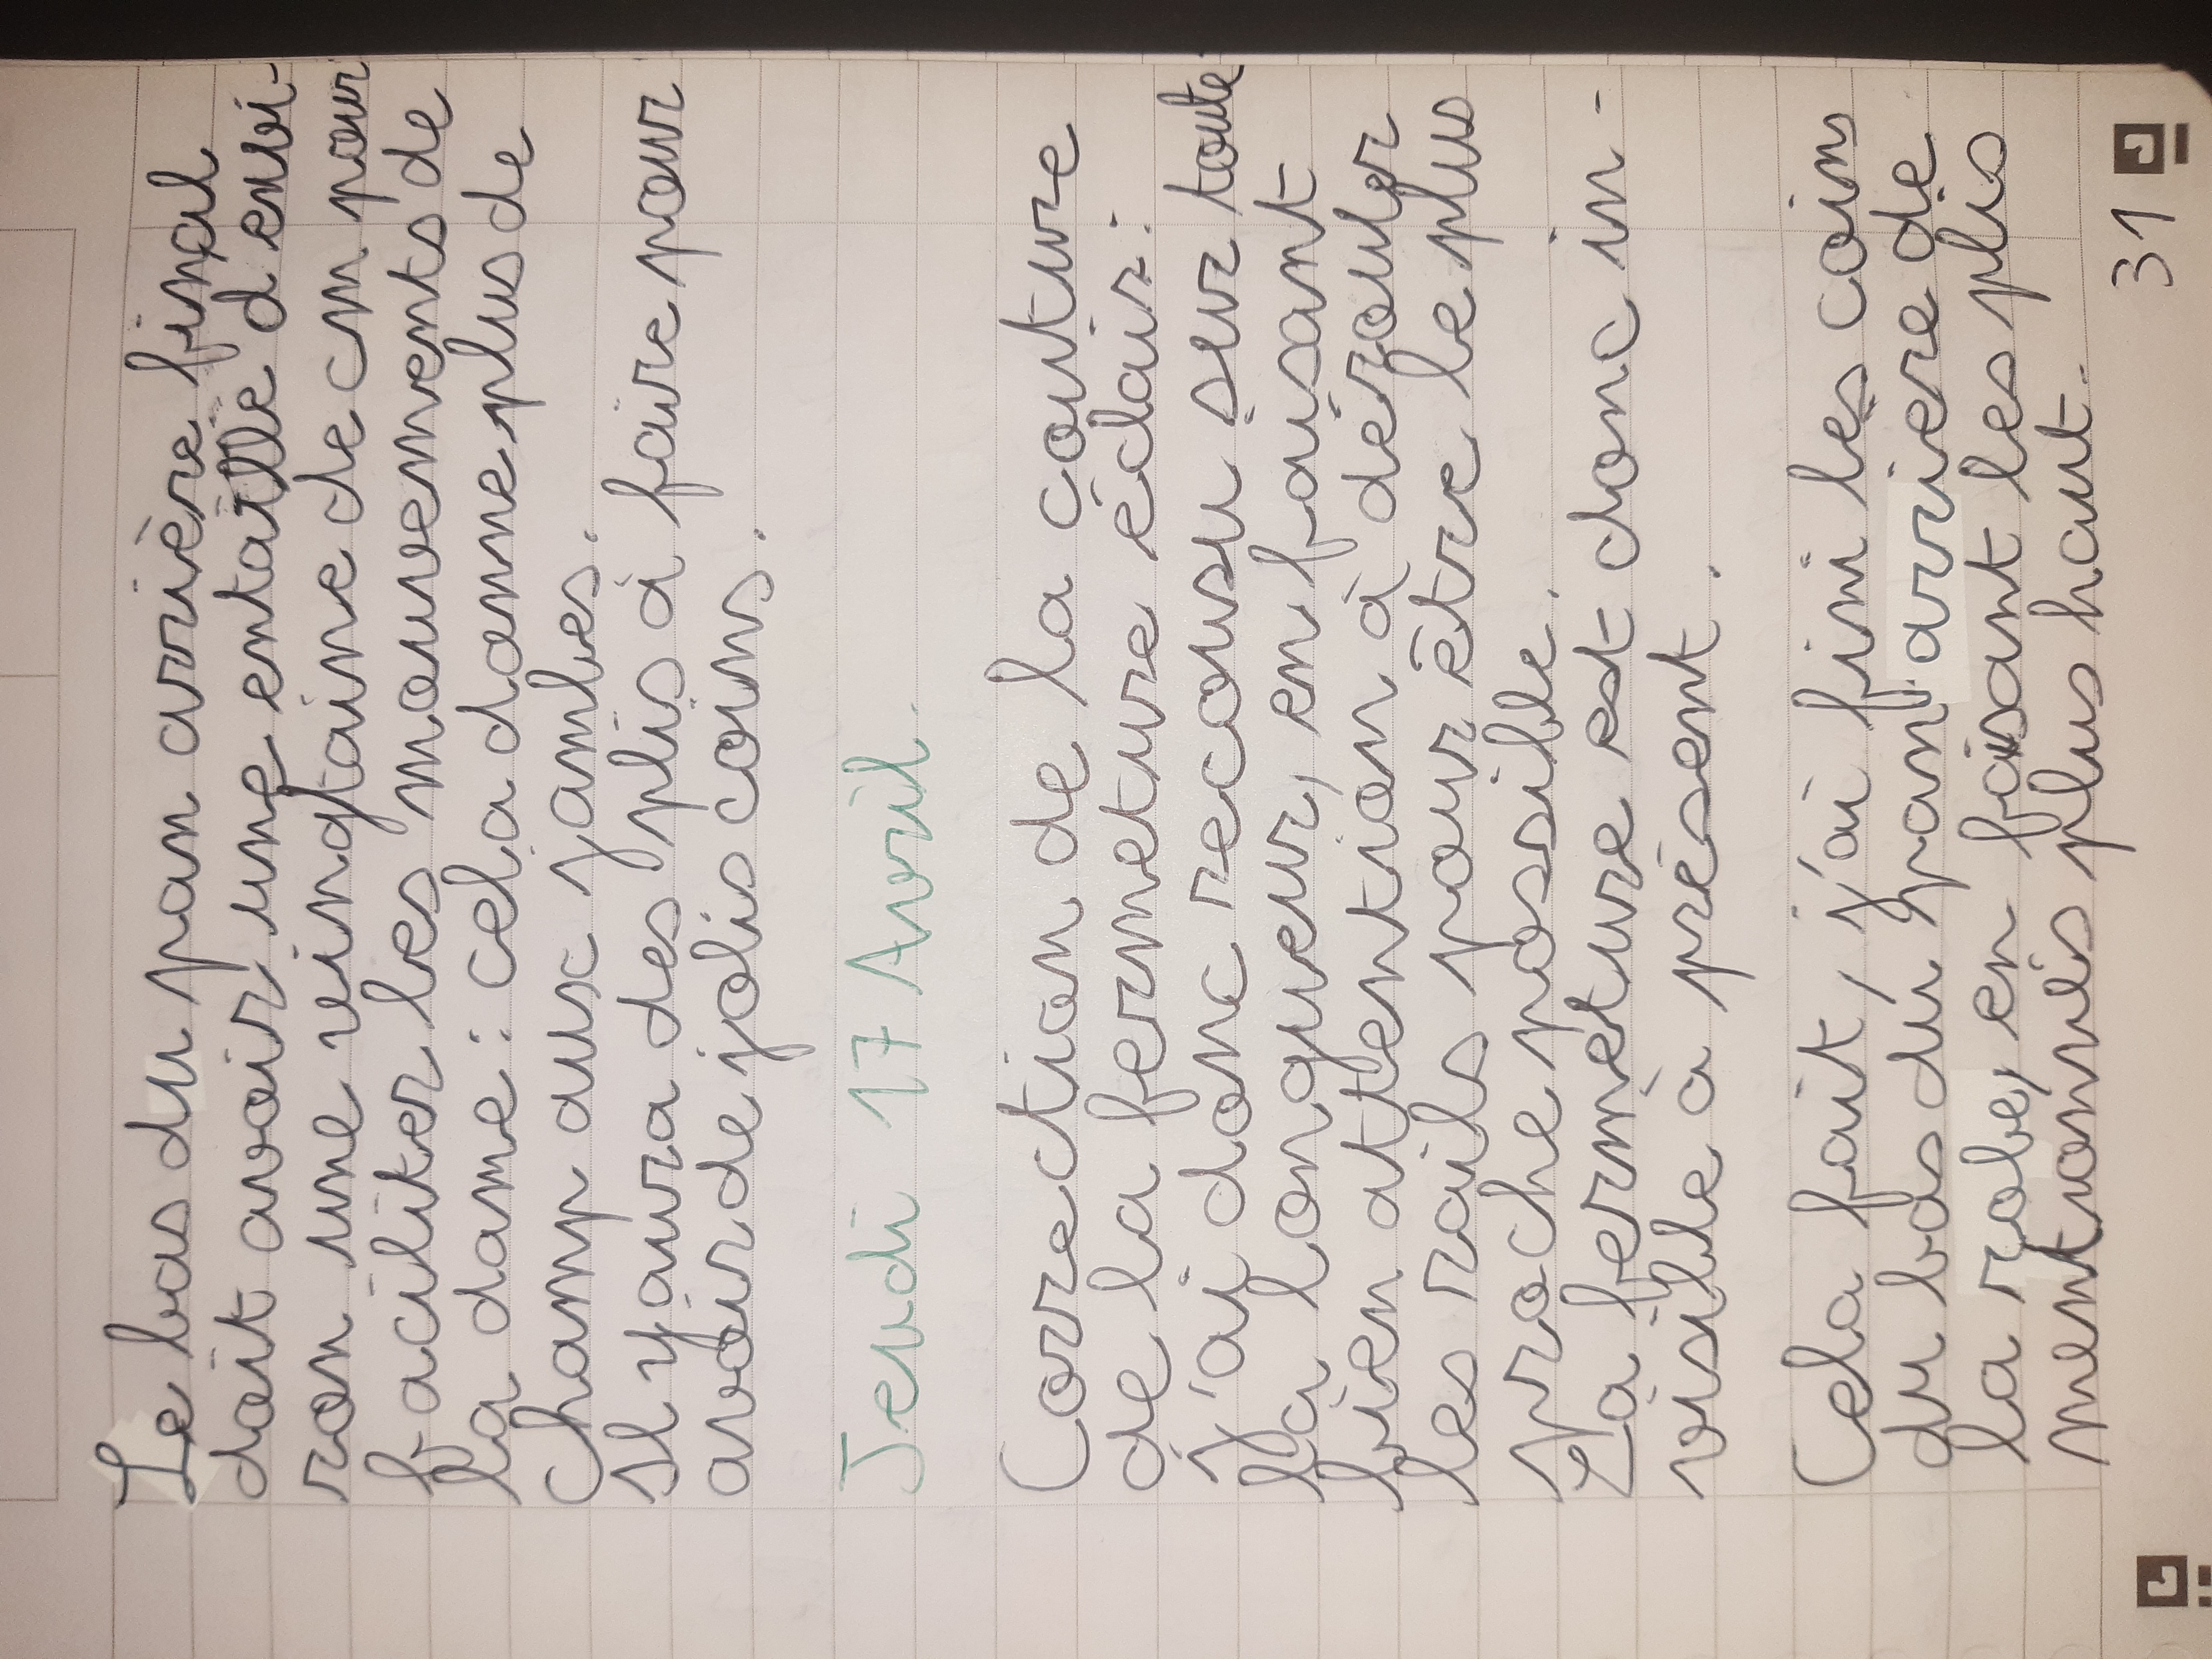 Le bas du pan arrière final
doit avoir une entaille d'envi-
ron une vingtaine de cm pour
faciliter les mouvements de
la dame : cela donne plus de
champ aux jambes.
Il y aura des plis à faire pour
avoir de jolis coins.
Jeudi 17 Avril.
Correction de la couture
de la fermeture éclair :
j'ai donc recousu sur toute
la longueur, en faisant
bien attention à dérouler
les rails pour être le plus
proche possible.
La fermeture est donc in-
visible à présent.
Cela fait, j'ai fini les coins
du bas du pan arriere de
la robe, en faisant les plis
mentionnés plus haut.
31